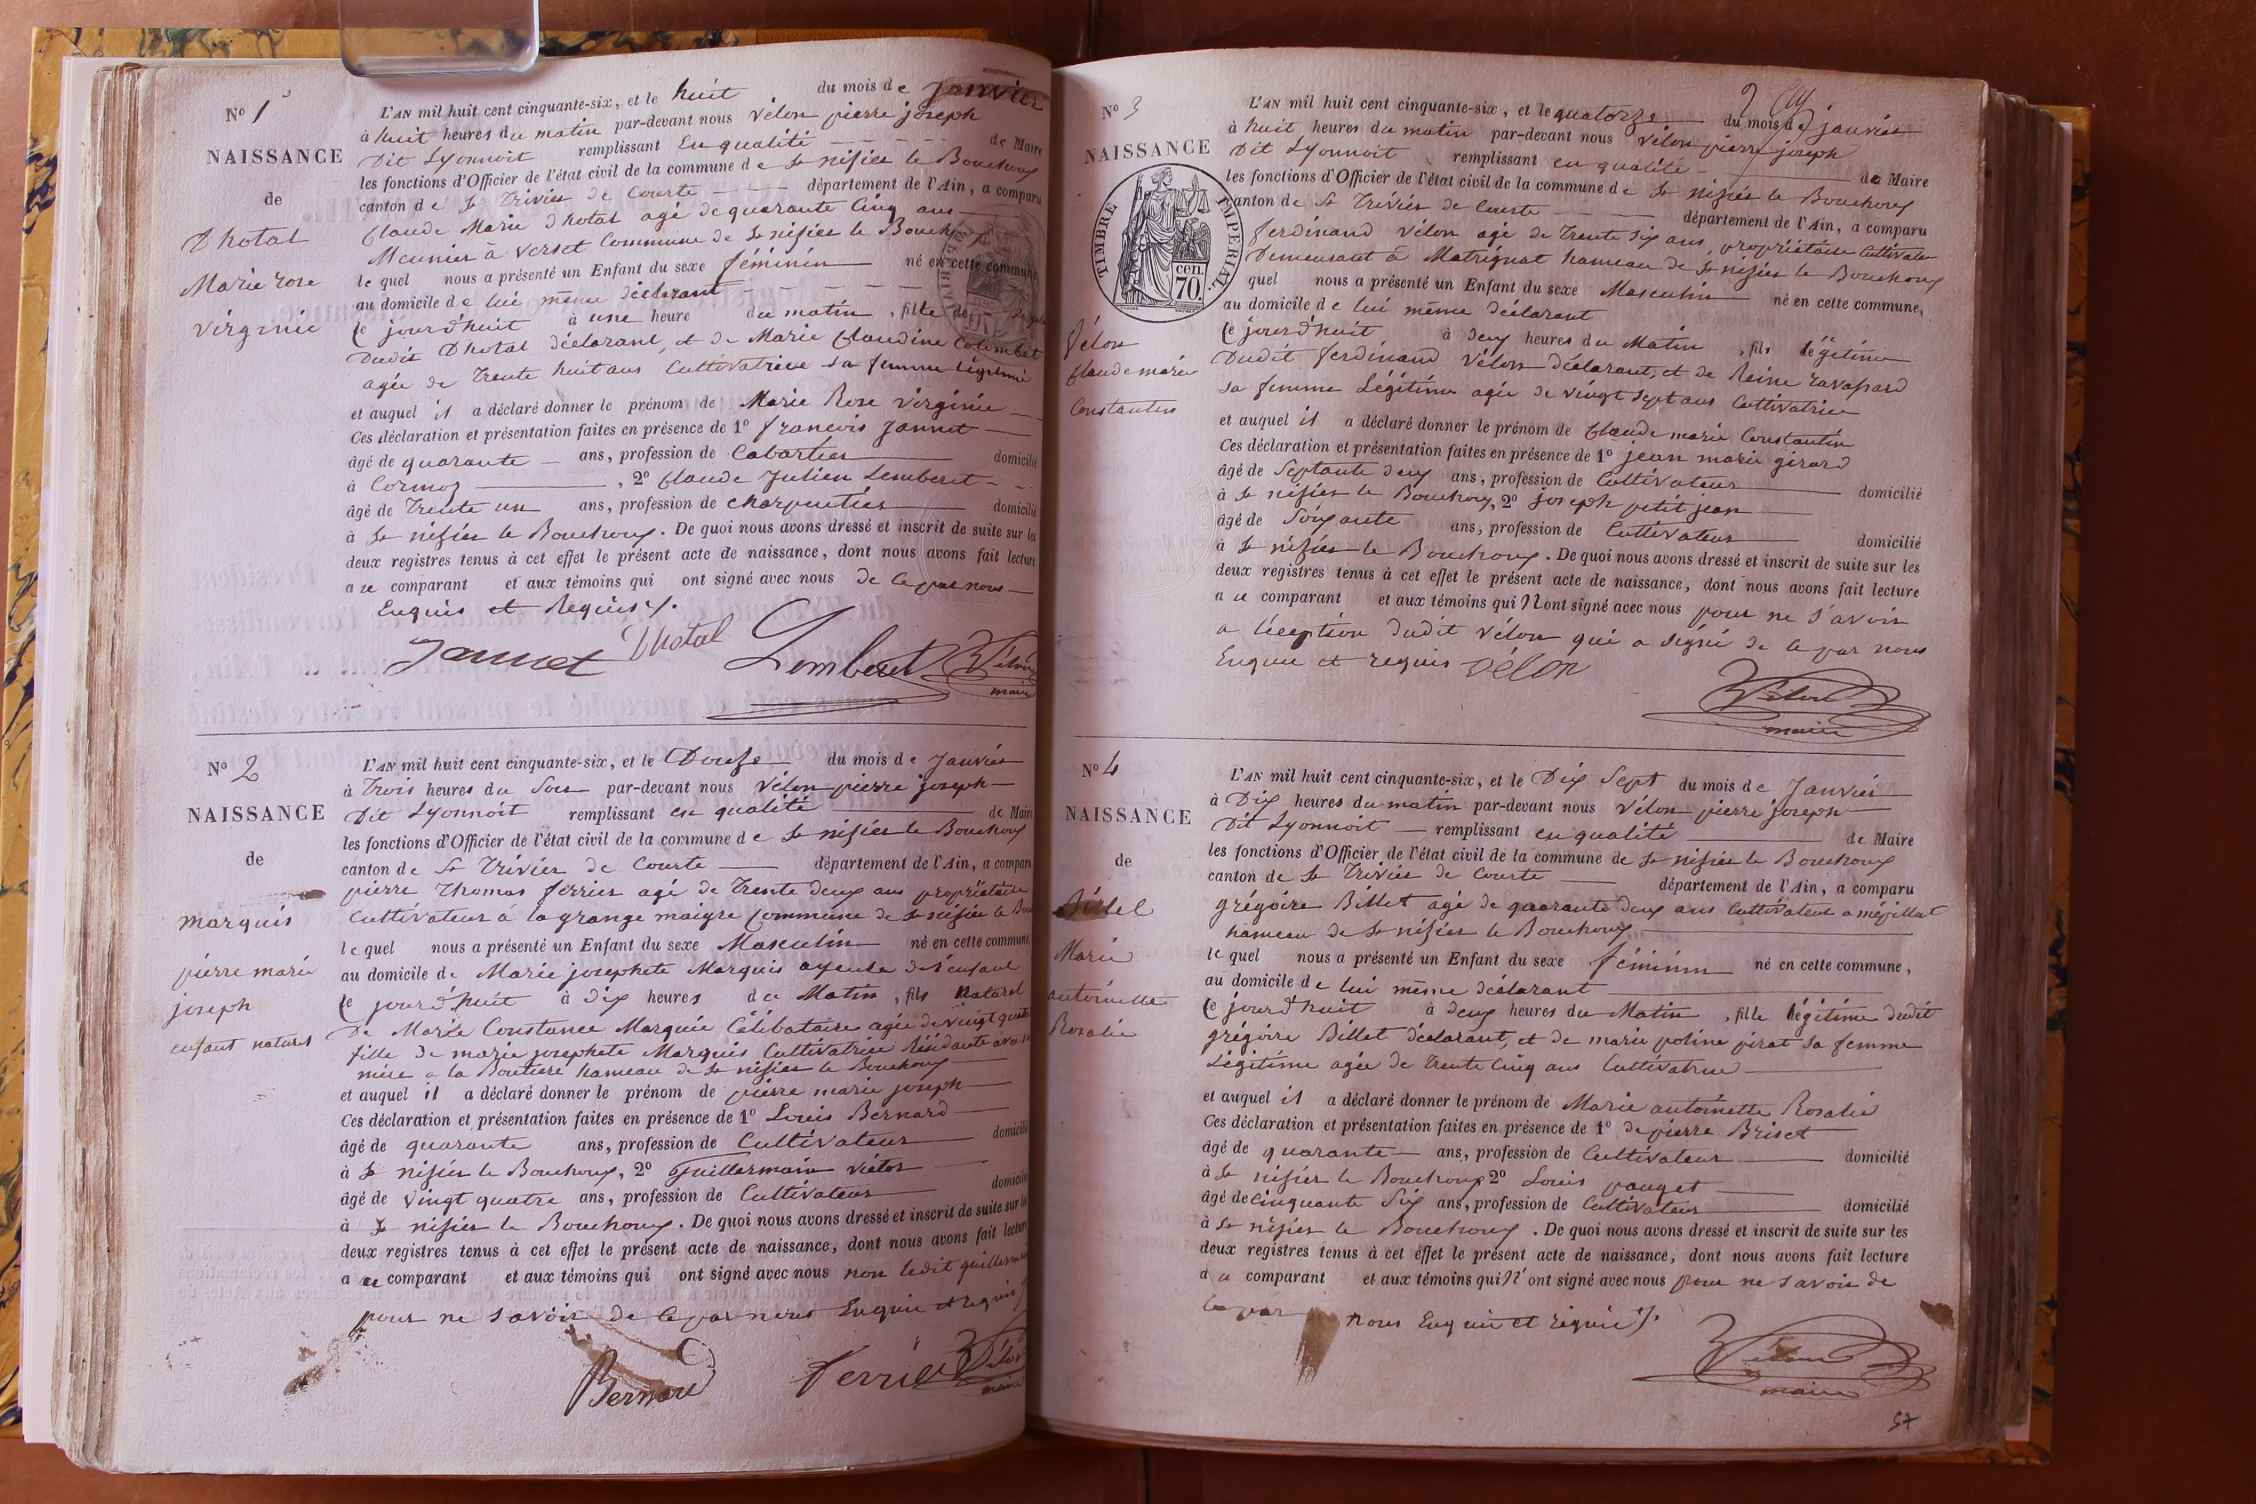 No 1
NAISSANCE
de
Dhotal
Marie rose
virginie
L'AN mil huit cent cinquante-six, et le huit du mois de Janvier
à huit heures du matin par-devant nous vélon pierre joseph
Dit Lyonnoit remplissant En qualité de Maire
les fonctions d'Officier de l'état civil de la commune de St nisier le Bouchoux
canton de St Trivier de Courte département de l'Ain, a comparu
Claude Marie Dhotal agé de quarante Cinq ans
Meunier à verset Commune de St nisier le Bouchoux
le quel nous a présenté un Enfant du sexe féminin né en cette commune,
au domicile de lui même déclarant
Ce jourd'huit à une heure du matin, fille
Dudit Dhotal déclarant, et de Marie Claudine Colombet
agée de Trente huit ans Cultivatrice sa femme Légitime
et auquel il a déclaré donner le prénom de Marie Rose virginie
Ces déclaration et présentation faites en présence de 1o francois Jannet
âgé de quarante ans, profession de Cabartier domicilié
à Cormoz, 2o Claude Julien Lemberet
âgé de Trente un ans, profession de charpentier domicilié
à St nisier le Bouchoux. De quoi nous avons dressé et inscrit de suite sur les
deux registres tenus à cet effet le présent acte de naissance, dont nous avons fait lecture
a ce comparant et aux témoins qui ont signé avec nous de Ce par nous
Enquis et Requis ./.
Jannet Dhotal Lemberet Vélon
maire
No 2
NAISSANCE
de
marquis
pierre marie
joseph
enfant naturel
L'AN mil huit cent cinquante-six, et le Douze du mois de Janvier
à Trois heures du Soir par-devant nous vélon pierre joseph
Dit Lyonnoit remplissant en qualité de Maire
les fonctions d'Officier de l'état civil de la commune de St nisier le Bouchoux
canton de St Trivier de Courte département de l'Ain, a comparu
pierre Thomas ferrier agé de Trente deux ans propriétaire
Cultivateur à la grange maigre Commune de St nisier le Bou
le quel nous a présenté un Enfant du sexe Masculin né en cette commune,
au domicile de Marie josephete Marquis ayeule de l'enfant
Ce jourd'huit à Dix heures du Matin, fils Naturel
De Marie Constance Marquis Célibataire agée de vingt quatre
fille de marie josephete Marquis Cultivatrice Résidante avec sa
mère a la Boutiere hameau de St nisier le Bouchoux
et auquel il a déclaré donner le prénom de pierre marie joseph
Ces déclaration et présentation faites en présence de 1o Louis Bernard
âgé de quarante ans, profession de Cultivateur domicilié
à St nisier le Bouchoux, 2o Guillermain victor
âgé de vingt quatre ans, profession de Cultivateur domicilié
à St nisier le Bouchoux. De quoi nous avons dressé et inscrit de suite sur les
deux registres tenus à cet effet le présent acte de naissance, dont nous avons fait lecture
a ce comparant et aux témoins qui ont signé avec nous non ledit guillermain
pour ne savoir de Ce par nous Enquis et requis
Bernard ferrier Vélon
maire
2
No 3
NAISSANCE
TIMBRE IMPERIAL
70 cen.
Vélon
Claude marie
Constantin
L'AN mil huit cent cinquante-six, et le quatorze du mois de janvier
à huit heures du matin par-devant nous vélon pierre joseph
Dit Lyonnoit remplissant en qualité de Maire
les fonctions d'Officier de l'état civil de la commune de St nisier le Bouchoux
canton de St Trivier de Courte département de l'Ain, a comparu
ferdinand vélon agé de Trente six ans, propriétaire Cultivateur
Demeurant à Matrignat hameau de St nisier le Bouchoux
quel nous a présenté un Enfant du sexe Masculin né en cette commune,
au domicile de lui même déclarant
Ce jourd'huit à deux heures du Matin, fils légitime
Dudit ferdinand vélon déclarant, et de Reine ravassard
sa femme Légitime agée de vingt sept ans Cultivatrice
et auquel il a déclaré donner le prénom de Claude marie Constantin
Ces déclaration et présentation faites en présence de 1o jean marie girard
âgé de Septante deux ans, profession de Cultivateur domicilié
à St nisier le Bouchoux, 2o joseph petitjean
âgé de Soixante ans, profession de Cultivateur domicilié
à St nisier le Bouchoux. De quoi nous avons dressé et inscrit de suite sur les
deux registres tenus à cet effet le présent acte de naissance, dont nous avons fait lecture
a ce comparant et aux témoins qui N'ont signé avec nous pour ne s'avoir
a l'éxeption dudit vélon qui a signé de Ce par nous
Enquis et requis vélon
Vélon
maire
No 4
NAISSANCE
de
Billet
Marie
antoinette
Rosalie
L'AN mil huit cent cinquante-six, et le Dix Sept du mois de Janvier
à Dix heures du matin par-devant nous vélon pierre joseph
Dit Lyonnoit remplissant en qualité de Maire
les fonctions d'Officier de l'état civil de la commune de St nisier le Bouchoux
canton de St Trivier de Courte département de l'Ain, a comparu
grégoire Billet agé de quarante deux ans Cultivateur a mépillat
hameau de St nisier le Bouchoux
le quel nous a présenté un Enfant du sexe féminin né en cette commune,
au domicile de lui même déclarant
Ce jourd'huit à deux heures du Matin, fille légitime dudit
grégoire Billet déclarant, et de marie poline pirat sa femme
Légitime agée de Trente Cinq ans Cultivatrice
et auquel il a déclaré donner le prénom de Marie antoinette Rosalie
Ces déclaration et présentation faites en présence de 1o de pierre Briset
âgé de quarante ans, profession de Cultivateur domicilié
à St nisier le Bouchoux 2o Louis pauget
âgé de cinquante Six ans, profession de Cultivateur domicilié
à St nisier le Bouchoux. De quoi nous avons dressé et inscrit de suite sur les
deux registres tenus à cet effet le présent acte de naissance, dont nous avons fait lecture
a ce comparant et aux témoins qui N'ont signé avec nous pour ne savoir de
Ce par nous Enquis et requis ./.
Vélon
maire
57